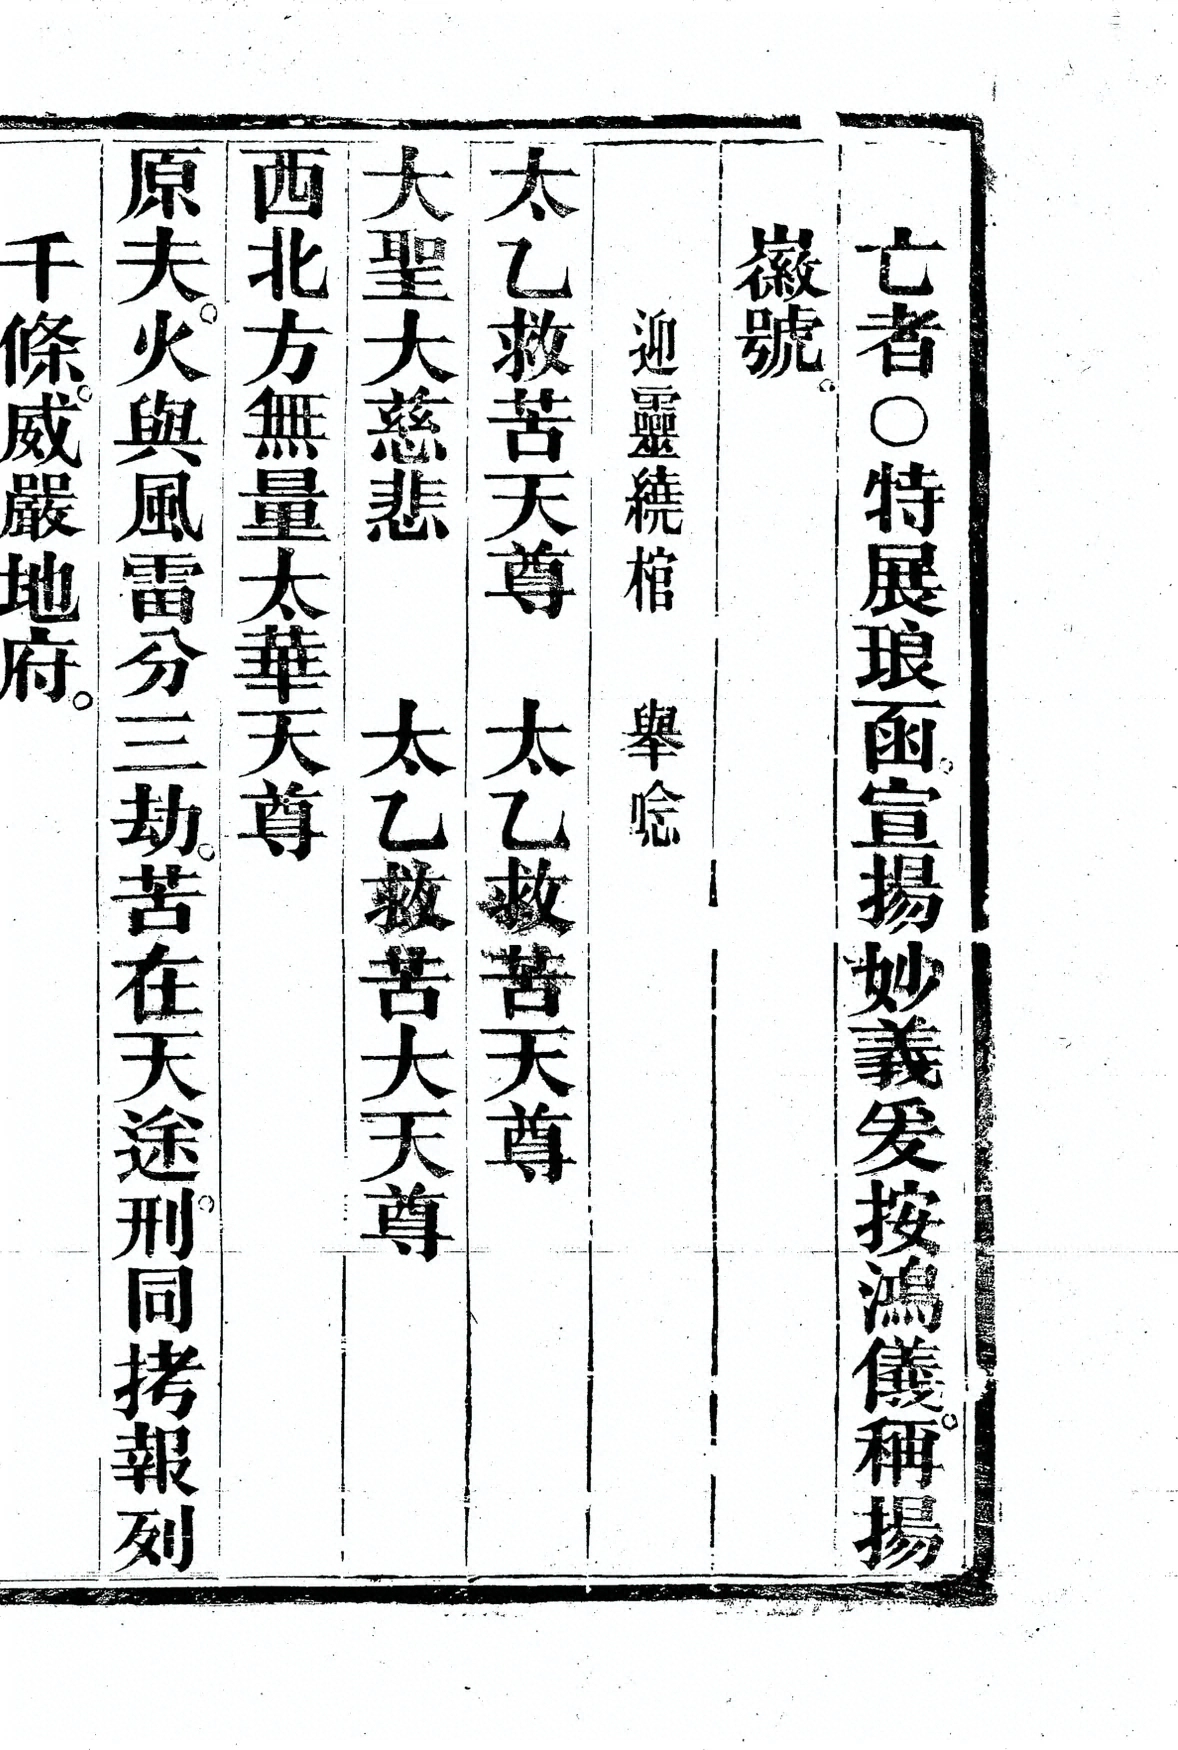 亡者○特展琅函。宣揚妙義爰按鴻儀。稱揚
徽號。
迎靈繞棺　舉唸
太乙救苦天尊　太乙救苦天尊
大聖大慈悲　太乙救苦大天尊
西北方無量太華天尊
原夫。火與風雷分三劫。苦在天途。刑同拷報列
千條。威嚴地府。